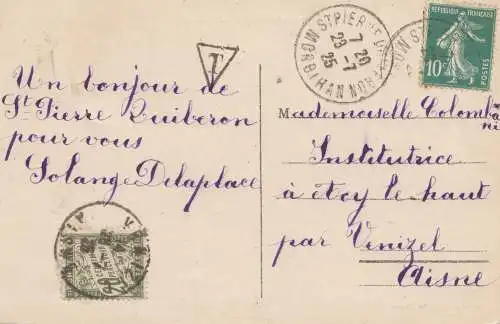 Un bonjour de
St Pierre Quiberon
pour vous
Solange Delaplace
T
ST PIERRE
MORBIHAN
7 20
23 -7
25
RÉPUBLIQUE FRANÇAISE
10c
POSTES
Mademoiselle
Institutrice
à
le haut
par Venizel
Aisne